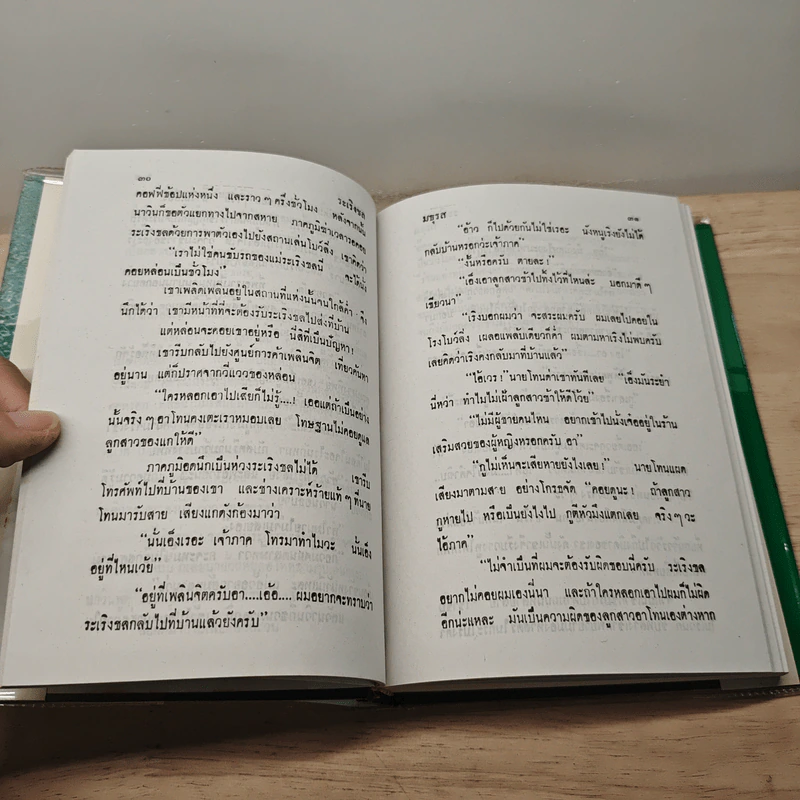 ๓๐
ระเริงชล
คอฟฟี่ช้อปแห่งหนึ่ง และราว ๆ ครึ่งชั่วโมง หลังจากนั้น
นาวินก็ขอตัวแยกทางไปจากสหาย ภาคภูมิฆ่าเวลารอคอย
ระเริงชลด้วยการพาตัวเองไปยังสถานเล่นโบว์ลิ่ง เขาคิดว่า
“เราไม่ใช่คนขับรถของแม่ระเริงชลนี่ จะได้นั่ง
คอยหล่อนเป็นชั่วโมง”
เขาเพลิดเพลินอยู่ในสถานที่แห่งนั้นจนใกล้ค่ำ จึง
นึกได้ว่า เขามีหน้าที่จะต้องรับระเริงชลไปส่งที่บ้าน
แต่หล่อนจะคอยเขาอยู่หรือ นี่สิที่เป็นปัญหา!
เขารีบกลับไปยังศูนย์การค้าเพลินจิต เที่ยวค้นหา
อยู่นาน แต่ก็ปราศจากวี่แววของหล่อน
“ใครหลอกเอาไปเสียก็ไม่รู้....! เออแต่ถ้าเป็นอย่าง
นั้นจริง ๆ อาโทนคงเตะเราหมอบเลย โทษฐานไม่คอยดูแล
ลูกสาวของแกให้ดี”
ภาคภูมิอดนึกเป็นห่วงระเริงชลไม่ได้ เขารีบ
โทรศัพท์ไปที่บ้านของเขา และช่างเคราะห์ร้ายแท้ ๆ ที่นาย
โทนมารับสาย เสียงแกดังก้องมาว่า
“นั้นเอ็งเรอะ เจ้าภาค โทรมาทำไมวะ นั้นเอ็ง
อยู่ที่ไหนเว้ย”
“อยู่ที่เพลินจิตครับอา....เอ้อ.... ผมอยากจะทราบว่า
ระเริงชลกลับไปที่บ้านแล้วยังครับ”
มธุรส
๓๑
“อ้าว ก็ไปด้วยกันไม่ใช่เรอะ นังหนูเริงยังไม่ได้
กลับบ้านหรอกวะเจ้าภาค”
“งั้นหรือครับ ตายละ!”
“เอ็งเอาลูกสาวข้าไปทิ้งไว้ที่ไหนล่ะ บอกมาดี ๆ
เชียวนา”
“เริงบอกผมว่า จะสระผมครับ ผมเลยไปคอยใน
โรงโบว์ลิ่ง เผลอแพลบเดียวก็ค่ำ ผมตามหาเริงไม่พบครับ
เลยคิดว่าเริงคงกลับมาที่บ้านแล้ว”
“ไอ้เวร!” นายโทนด่าเขาทันทีเลย “เอ็งมันระยำ
นี่หว่า ทำไมไม่เฝ้าลูกสาวข้าให้ดีโว้ย”
“ไม่มีผู้ชายคนไหน อยากเข้าไปนั่งเจ่าอยู่ในร้าน
เสริมสวยของผู้หญิงหรอกครับ อา”
“กูไม่เห็นจะเสียหายยังไงเลย!” นายโทนแผด
เสียงมาตามสาย อย่างโกรธจัด “คอยดูนะ! ถ้าลูกสาว
กูหายไป หรือเป็นยังไงไป กูตีหัวมึงแตกเลย จริง ๆ วะ
ไอ้ภาค”
“ไม่จำเป็นที่ผมจะต้องรับผิดชอบนี่ครับ ระเริงชล
อยากไม่คอยผมเองนี่นา และถ้าใครหลอกเอาไปผมก็ไม่ผิด
อีกน่ะแหละ มันเป็นความผิดของลูกสาวอาโทนเองต่างหาก